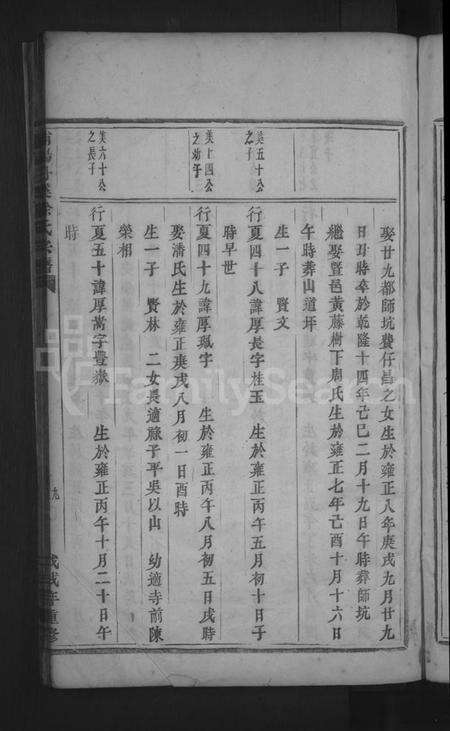 娶廿九都師坑黃仔昌之女生於雍正八年庚戌九月廿九
日丑時卒於乾隆十四年己巳二月十九日午時葬師坑
繼娶暨邑黃藤樹下周氏生於雍正七年己酉十月十六日
午時葬山道坪
生一子 賢文
美五十公之子
行夏四十八諱厚長字桂玉 生於雍正丙午五月初十日子
時早世
美十四公之幼子
行夏四十九諱厚珮字 生於雍正丙午八月初五日戌時
娶潘氏生於雍正庚戌八月初一日酉時
生一子 賢林 二女長適祿子平吳以山 幼適寺前陳
榮相
美六十公之長子
行夏五十諱厚嵩字豐嶽 生於雍正丙午十月二十日午
時
九
戊戌年重修
FamilySearch